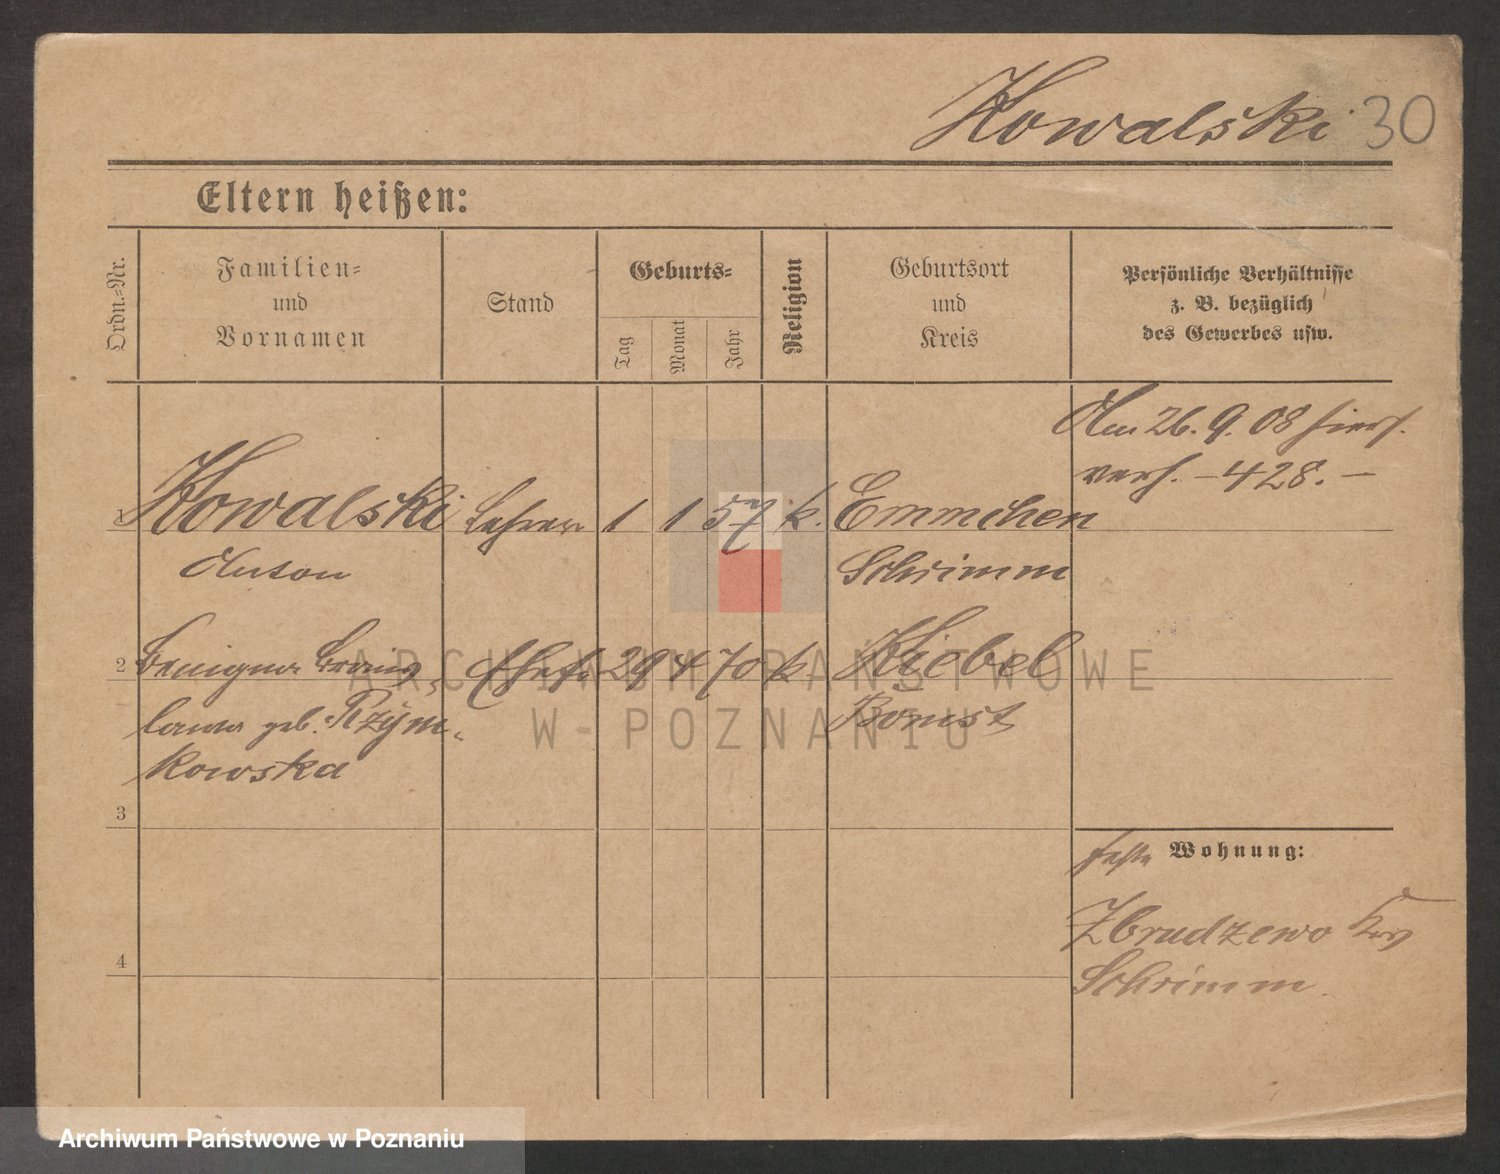 Kowalski 30
Eltern heißen:
Ordn.-Nr.
Familien-
und
Vornamen
Stand
Geburts-
Tag
Monat
Jahr
Religion
Geburtsort
und
Kreis
Persönliche Verhältnisse
z. B. bezüglich
des Gewerbes usw.
Am 26. 9. 08 hiers.
verh. – 428. –
1 Kowalski Lehrer 1 1 57 k. Emmchen
Anton Schrimm
2 Benigna Bronis- Ehefr. 29 4 70 k. Kiebel
lawa geb. Rzym- Bomst
kowska
3
Wohnung:
Zbrudzewo Krs
Schrimm
4
ARCHIWUM PAŃSTWOWE
W - POZNANIU
Archiwum Państwowe w Poznaniu